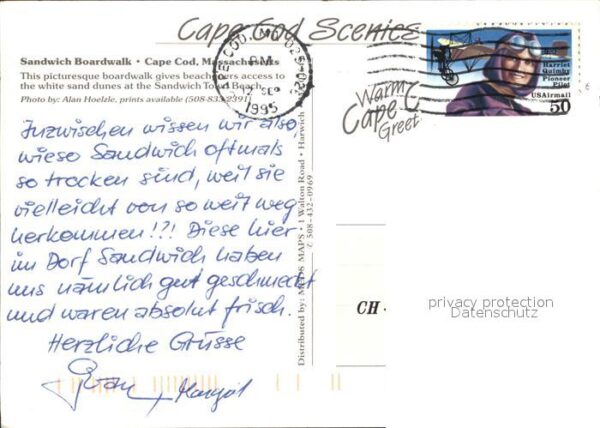 Cape Cod Scenics
Sandwich Boardwalk • Cape Cod, Massachusetts
This picturesque boardwalk gives beachgoers access to
the white sand dunes at the Sandwich Town Beach.
Photo by: Alan Hoelzle, prints available (508-833-2391)
PM
SEP
1995
Warm
Cape C
Greet
Harriet
Quimby
Pioneer
Pilot
USAirmail
50
Inzwischen wissen wir also
wieso Sandwich oftmals
so trocken sind, weil sie
vielleicht von so weit weg
herkommen!?! Diese hier
im Dorf Sandwich haben
uns nämlich gut geschmeckt
und waren absolut frisch.
Herzliche Grüsse
Margot
Distributed by: MAPS • 1 Walton Road • Harwich
© 508-432-0969
CH -
privacy protection
Datenschutz